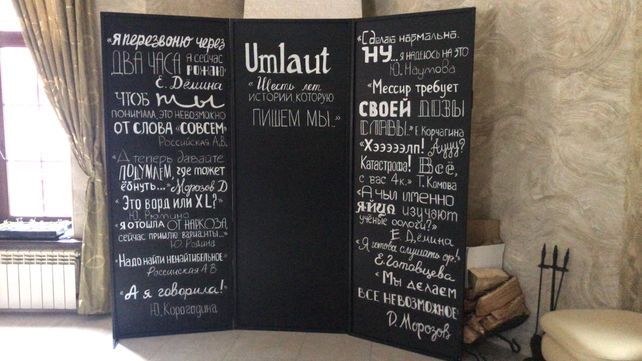 «Я ПЕРЕЗВОНЮ ЧЕРЕЗ
ДВА ЧАСА Я СЕЙЧАС
РОЖАЮ»
Е. Дёмина
ЧТОБ ТЫ
ПОНИМАЛА, ЭТО НЕВОЗМОЖНО
ОТ СЛОВА «СОВСЕМ»
Российская А.В.
«А теперь давайте
ПОДУМАЕМ, где может
ёбнуть...» Морозов Д
«Это ворд или XL?»
Ю. Рютина
«Я ОТОШЛА ОТ НАРКОЗА,
сейчас пришлю варианты...»
Ю. Родина
«Надо найти ненайтибельное»
Российская А В
«А я говорила!»
Ю. Корогодина
Umlaut
«Шесть лет
ИСТОРИИ, КОТОРУЮ
ПИШЕМ МЫ...»
«Сделаю нормально.
НУ... Я НАДЕЮСЬ НА ЭТО
Ю. Наумова
«Мессир требует
СВОЕЙ ДОЗЫ
СЛАВЫ.» Е Корчагина
«Хэээээлп! Ауууу?
Катастрофа! Всё,
с вас 4к.» Т. Комова
«А ЧЬИ ИМЕННО
ЯЙЦА ИЗУЧАЮТ
учёные оологи?»
Е. Дёмина
«Я готова слушать ор!»
Е. Готовцева
«Мы делаем
ВСЕ НЕВОЗМОЖНОЕ»
Д. Морозов